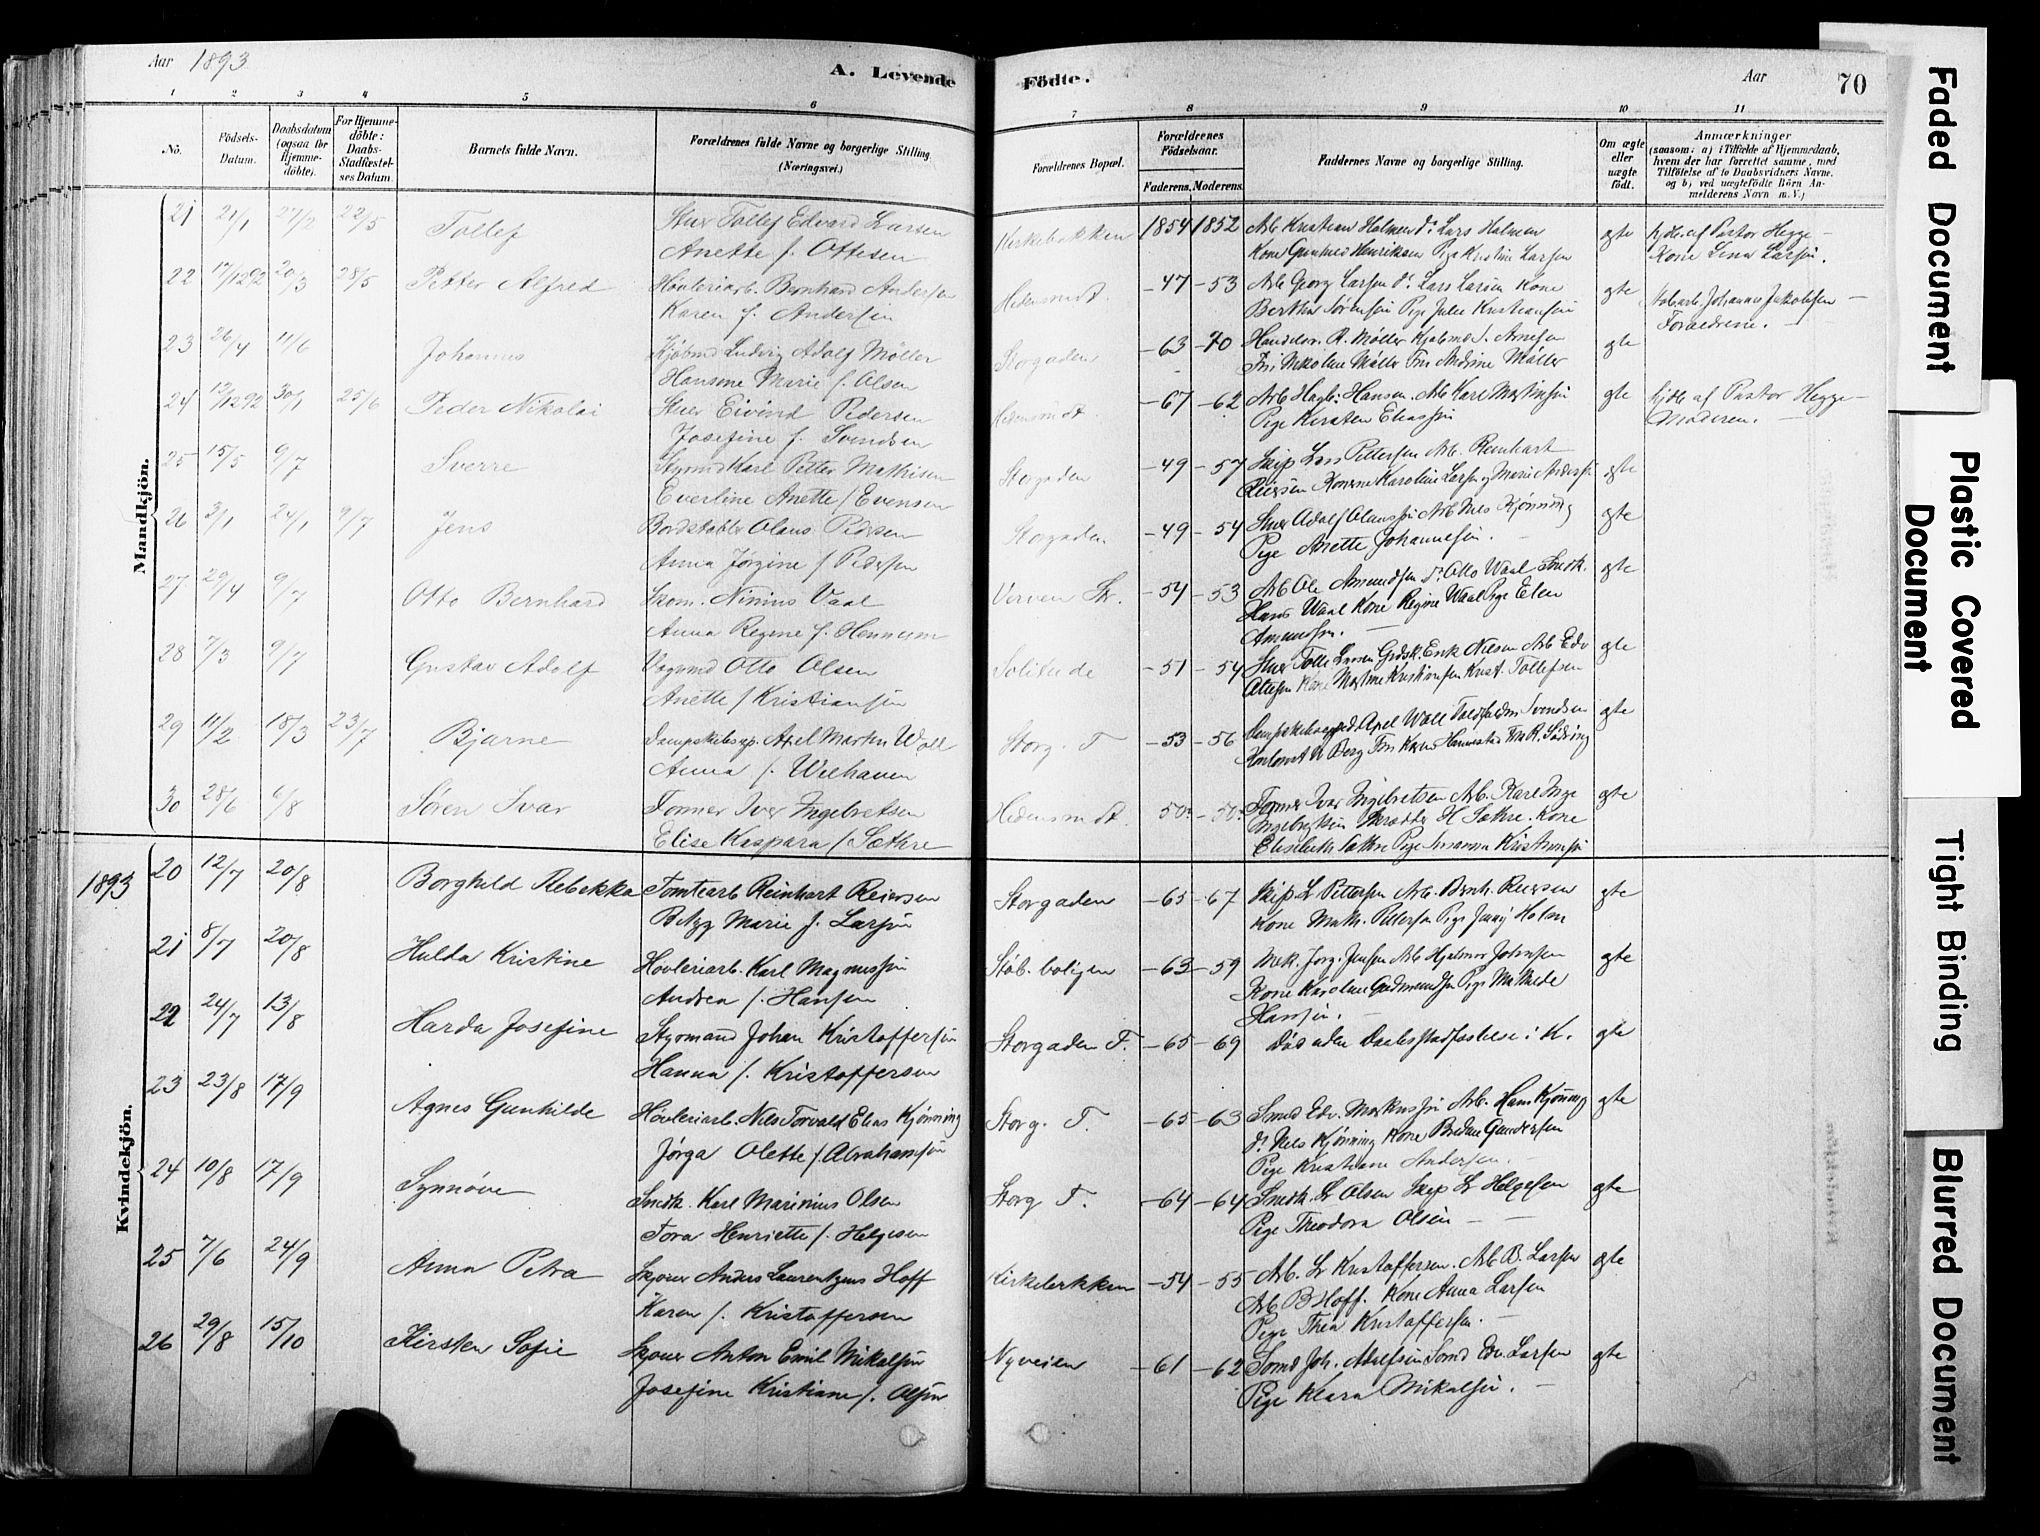 Aar 1893
A. Levende Födte.
Aar
70
1 2 3 4 5 6 7 8 9 10 11
No.
Födsels-Datum.
Daabsdatum (ogsaa for Hjemmedöbte).
For Hjemmedöbte: Daabs-Stadfæstelses Datum.
Barnets fulde Navn.
Forældrenes fulde Navne og borgerlige Stilling. (Næringsvei.)
Forældrenes Bopæl.
Forældrenes Födselsaar.
Faderens. Moderens.
Faddernes Navne og borgerlige Stilling.
Om ægte eller uægte födt.
Anmærkninger
(saasom: a) i Tilfælde af Hjemmedaab, hvem der har forrettet samme, med Tilföielse af to Daabsvidners Navne, og b) ved uægtefödte Börn Anmelderens Navn m. V.)
Mandkjön.
21 21/1 27/2 22/5 Tollef Stuer Tollef Edvard Larsen Kirkebakken 1854 1852 Arb Kristian Holmen Do Lars Holmen ægte hjdb. af Pastor Hegge
Anette f. Ottesen Kone Gunhild Henriksen Pige Kristine Larsen Kone Lina Larsen.
22 17/12 92 20/3 28/5 Petter Alfred Høvleriarb. Bernhard Andersen Hedensmdt. 47 53 Arb Georg Larsen Do Lars Larsen Kone ægte Johannes Jakobsen
Karen f. Andersen Bertha Sørensen Pige Julie Kristiansen Forældrene.
23 26/4 11/6 Johannes Kjøbmd Ludvig Adolf Møller Storgaden 63 70 Handelsm. R. Møller Kjøbmd S. Arnesen ægte
Hansine Marie f. Olsen Frk Nikoline Møller Frk Andrine Møller
24 12/12 92 30/1 25/6 Peder Nikolai Stuer Eivind Pedersen Hedensmdt. 67 62 Arb Hagb. Hansen. Arb Karl Martinsen ægte hjdb. af Pastor Hegge
Josefine f. Svendsen Pige Kirsten Eliassen Moderen.
25 15/5 9/7 Sverre Styrmd Karl Petter Mathisen Storgaden 49 57 Skip Lars Pettersen Arb. Reinhart ægte
Everline Anette f Evensen Reiersen Konerne Karoline Larsen og Marie Anders.
26 3/1 24/1 9/7 Jens Bordstabler Olaus Pedersen Storgaden 49 54 Stuer Adolf Olaussen Arb Nils Kjønning ægte
Anna Jørgine f Pedersen Pige Anette Johannesen.
27 29/4 9/7 Otto Bernhard Skom. Ninius Vaal Verven Str. 54 53 Arb Ole Amundsen Do Otto Waal Snedk. ægte
Anna Regine f. Hennum Hans Waal Kone Regine Waal Pige Elen
Amundsen.
28 7/3 9/7 Gustav Adolf Vognmd Otto Olsen Solitude 51 54 Stuer Tolle Larsen Gdsk. Erik Nilsen Arb Edv ægte
Anette f Kristiansen Ottesen Kone Martine Kristiansen Krist. Tollefsen
29 11/2 18/3 23/7 Bjarne Dampskibsexp. Axel Martin Woll Storg. T 53 56 Axel Woll Svendsen ægte
Anna f. Welhaven N Berg Frk Karen Hannestad
30 28/6 6/8 Søren Ivar Former Iver Ingebretsen Hedensmdt. 50 50 Former Ivar Ingebretsen Arb. Karl Inge ægte
Elise Kaspara f Sæthre Ingebrigtsen Skrædder H Sæthre. Kone
Elisabeth Sæthre Pige Susanna Kristensen
1893
Kvindekjön.
20 12/7 20/8 Borghild Rebekka Tomtearb Reinhart Reiersen Storgaden 65 67 Skip. Lr Pettersen Arb. Bernh. Reiersen ægte
Betzy Marie f. Larsen Kone Math. Pettersen Pige Jenny Holm
21 8/7 20/8 Hulda Kristine Høvleriarb. Karl Magnussen Støb. boligen 63 59 Mek. Jørg. Jensen Arb Hjalmar Johnsen ægte
Andrea f. Hansen Kone Karoline Gudmundsen Pige Mathilde
Hansen.
22 24/7 13/8 Harda Josefine Styrmand Johan Kristoffersen Storgaden T. 65 69 Død uden Daabsstadfæstelse i K. ægte
Hanna f. Kristoffersen
23 23/8 17/9 Agnes Gunhilde Høvleriarb. Nils Torvald Elias Kjønning Storg. T. 65 63 Smed Edv. Markussen Arb. Hans Kjønning ægte
Jørga Olette f. Abrahamsen Do Nils Kjønning Kone Bredine Gundersen
Pige Kristiane Andersen.
24 10/8 17/9 Synnøve Snedk. Karl Marinius Olsen Storg T. 64 64 Snedk. Lr Olsen Skip Lr Helgesen ægte
Tora Henriette f. Helgesen Pige Theodora Olsen
25 7/6 24/9 Anna Petra Skjører Anders Laurentzius Hoff Kirkebakken 54 55 Arb. Lr Kristoffersen. Arb B. Larsen ægte
Karen f. Kristoffersen Arb B Hoff. Kone Anna Larsen
Pige Thea Kristoffersen.
26 29/8 15/10 Kirsten Sofie Skjører Anton Emil Mikalsen Nyveien 61 62 Sømd Joh. Adolfsen Sømd Edv. Larsen ægte
Josefine Kristiane f. Olsen Pige Klara Mikalsen.
Faded Document
Plastic Covered Document
Tight Binding
Blurred Document